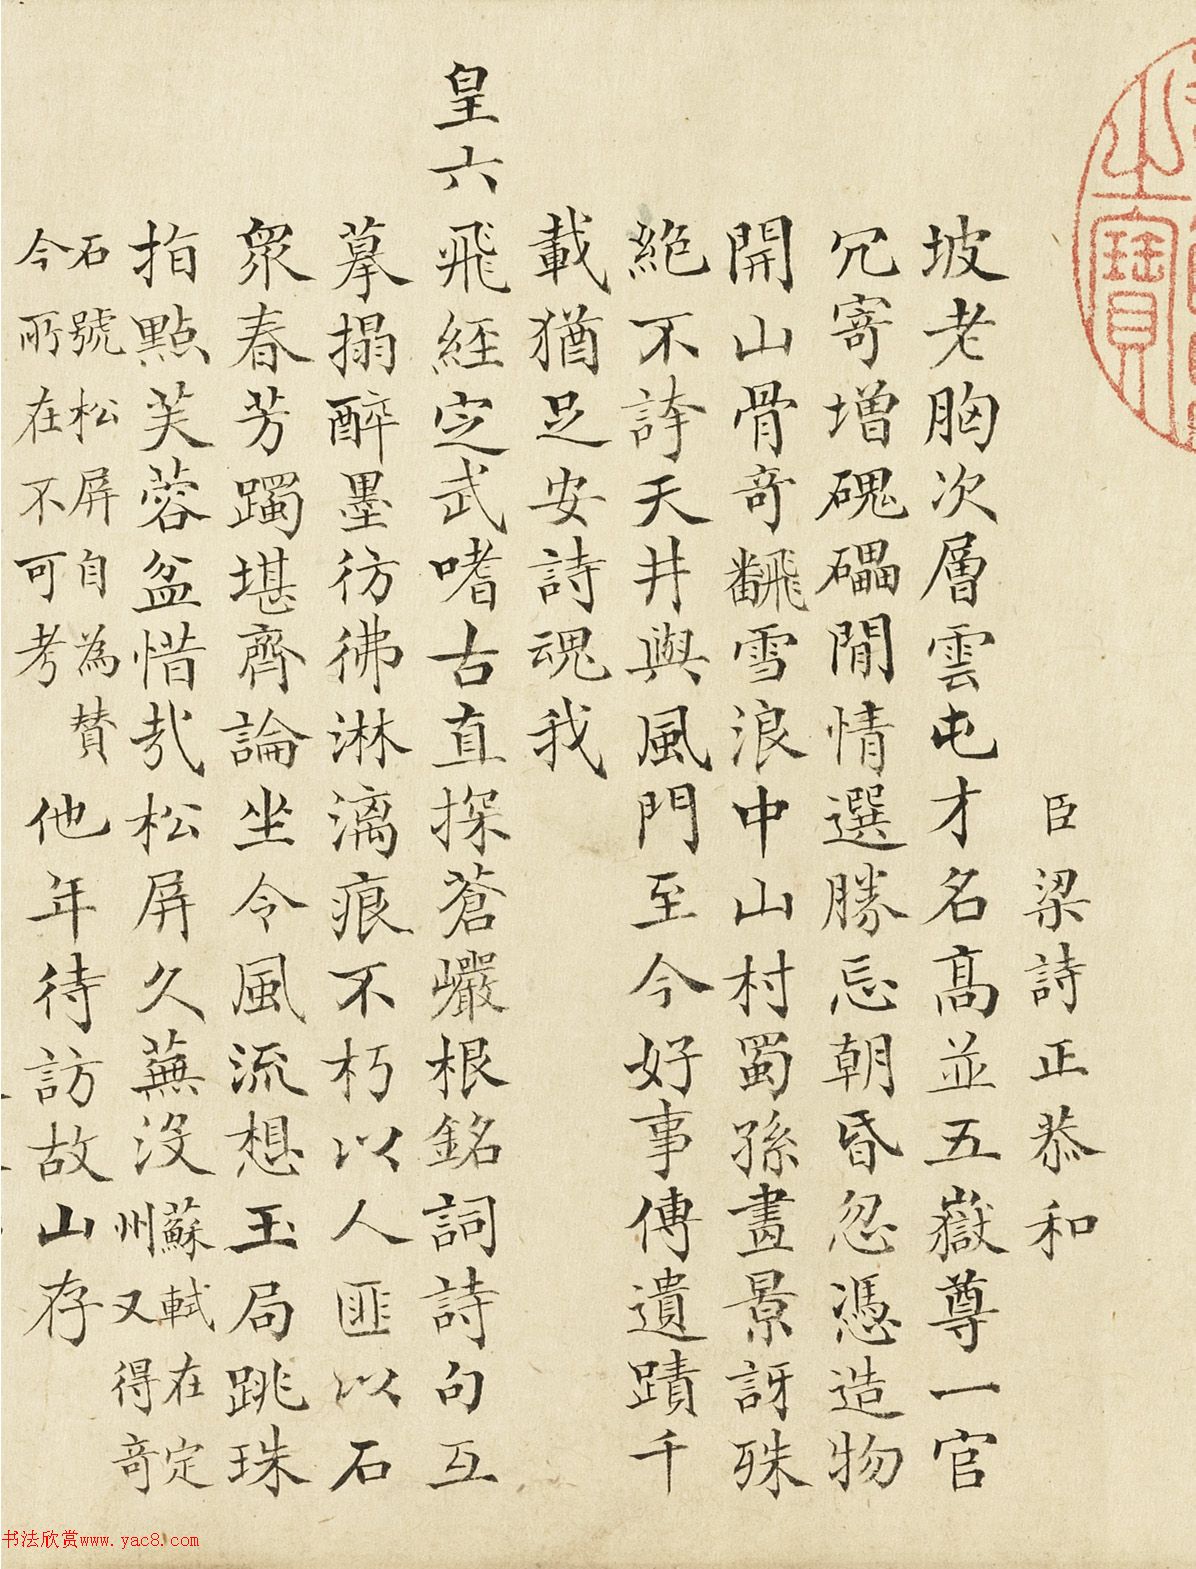 之寶
臣梁詩正恭和
坡老胸次層雲屯才名髙並五嶽尊一官
冗寄增磈礧閒情選勝忘朝昏忽憑造物
開山骨奇飜雪浪中山村蜀孫畫景訝殊
絶不誇天井與風門至今好事傳遺蹟千
載猶足安詩魂我
皇六飛經定武嗜古直探蒼巖根銘詞詩句互
摹搨醉墨彷彿淋漓痕不朽以人匪以石
衆春芳躅堪齊論坐令風流想玉局跳珠
指點芙蓉盆惜哉松屏久蕪没蘇軾在定州又得奇
石號松屏自為賛今所在不可考他年待訪故山存
书法欣赏www.yac8.com